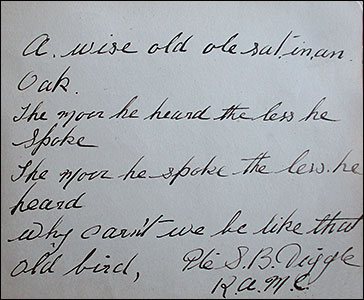 A. wise old ole sat. in. an.
Oak.
The moor he heard the less he
spoke
The moor he spoke the less. he
heard
why carn't we be like that
old bird,
Pte S. B. Diggle
R.A.M.C.